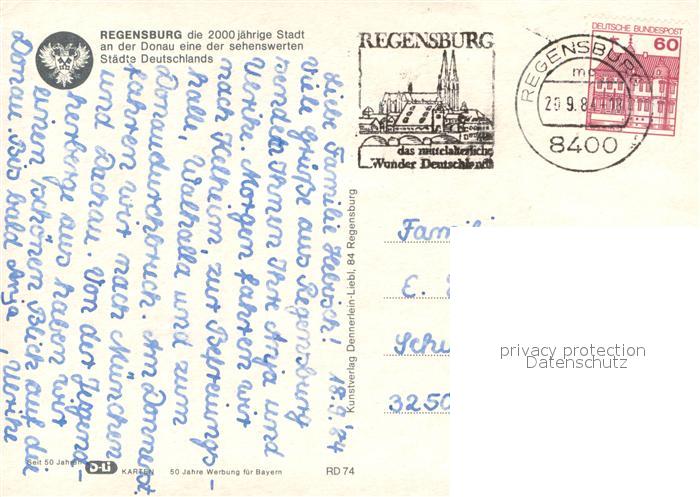 REGENSBURG die 2000 jährige Stadt
an der Donau eine der sehenswerten
Städte Deutschlands
REGENSBURG
das mittelalterliche
Wunder Deutschlands
REGENSBURG
8400
DEUTSCHE BUNDESPOST
60
Liebe Familie 18.9.84
viele grüße aus Regensburg
senden Ihnen Ihre Anja und
Ulrike. Morgen fahren wir
nach Kelheim, zur Befreiungs-
halle, Walhalla und zum
Donaudurchbruch. Am Donnerst.
fahren wir nach München
und Dachau. Von der Jugend-
herberge aus haben wir
einen schönen Blick auf die
Donau. Bis bald Anja, Ulrike
Kunstverlag Dennerlein-Liebl, 84 Regensburg
Famili
E.
Schu
3250
privacy protection
Datenschutz
Seit 50 Jahren
KARTEN
50 Jahre Werbung für Bayern
RD 74